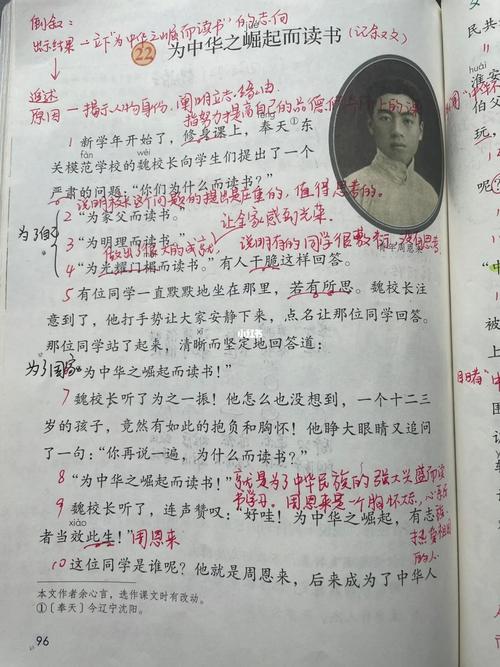 倒叙：
出示结果—立下"为中华之崛起而读书"的志向
22 为中华之崛起而读书（记叙文）
追述
原因—揭示人物身份，阐明立志缘由
指努力提高自己的品德修
1 新学年开始了，修身课上，奉天①东
fàn wèi
关模范学校的魏校长向学生们提出了一个
严肃的问题："你们为什么而读书？"
说明校长这个问题的提出是庄重的，值得思考的。
2 "为家父而读书。"
为了自己
让全家感到光荣。
3 "为明理而读书。"
做出了很大的成就
说明有的同学很敷衍，没有思考
4 "为光耀门楣而读书。"有人干脆这样回答。
青年周恩来
5 有位同学一直默默地坐在那里，若有所思。魏校长注
意到了，他打手势让大家安静下来，点名让那位同学回答。
那位同学站了起来，清晰而坚定地回答道：
为了国家
6 "为中华之崛起而读书！"
7 魏校长听了为之一振！他怎么也没想到，一个十二三
岁的孩子，竟然有如此的抱负和胸怀！他睁大眼睛又追问
了一句："你再说一遍，为什么而读书？"
8 "为中华之崛起而读书！"就是为了中华民族的强大兴盛而读
书学习。周恩来是一个胸怀大志，心系
9 魏校长听了，连声赞叹："好哇！为中华之崛起，有志
xiào
者当效此生！"周恩来
热爱祖国
的人
10 这位同学是谁呢？他就是周恩来，后来成为了中华人
本文作者余心言，选作课文时有改动。
①〔奉天〕今辽宁沈阳。
96
小红书
民共
huái
淮安
伯父
玩，
呢